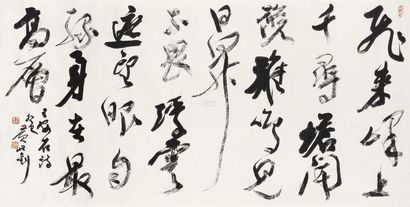 飛来峰上
千尋塔聞
說雞鳴見
日昇
不畏浮雲
遮望眼自
緣身在最
高層
王安石詩